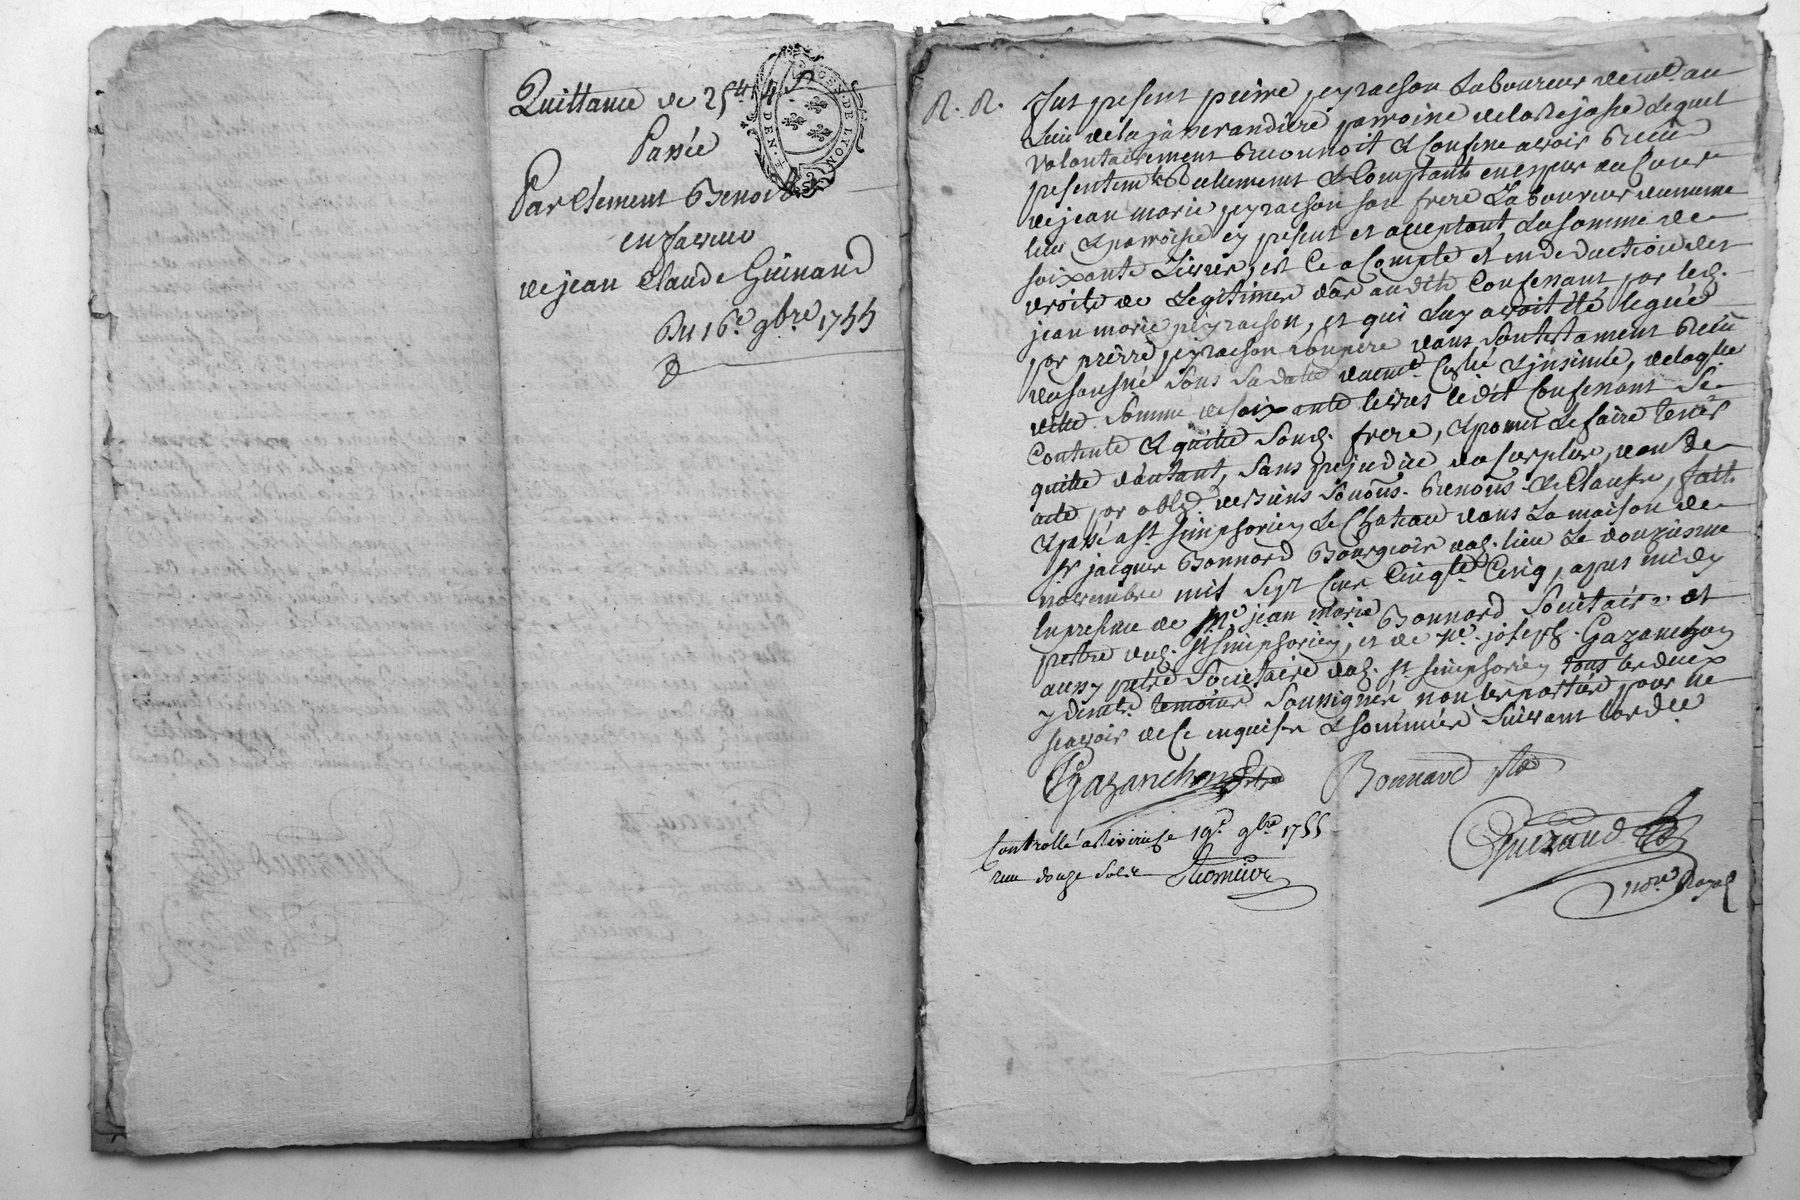 Quittance de 25ᵗᵗ 4 s
GEN. DE LYON
Passée
Par Clement Benoit
en faveur
de jean Claude Guinand
Du 16.ᵉ 9bre 1755
R. R.
Fut present pierre peyrachon Laboureur demt. au
Lieu de la parroisse de Lequel
volontairement Reconnoit & Confesse avoir Receu
presentemt. Rellement & Comptant en especes au Cours
de jean marie peyrachon son frere Laboureur du meme
lieu & parroisse cy present et acceptant, La somme de
soixante Livres, et Ce a Compte et en deduction des
droits de Legitimes dûs audit Confessant, par led.
jean marie peyrachon, et qui Luy avoit été legués
par pierre peyrachon son pere dans son testament Receu
du sousné. sous sa datte duemt. Collé & jnsinué, de laqlle
ditte somme de soixante livres ledit Confessant Se
Contente & quitte Sond. frere, & promet Le faire tenir
quitte d'autant, sans prejudice du surplus, dont De
acte par oblig. de biens Soumis. Renons. & Clauses, fait
& passé a st. simphorien Le Chateau dans La maison de
sr. jacques Bonnard Bourgeois dud. lieu Le douzieme
novembre mil Sept Cent Cinqte Cinq, apres midy
En presence de Mre jean marie Bonnard Societaire et
prêtre dud. st. simphorien, et de Mre. joseph. Gazanchon
aussy prêtre Societaire dud. st. simphorien tous les deux
y demts. temoins Soussignés non les parties pour ne
sçavoir de Ce enquises & sommées suivant lordce
Gazanchon ptre Bonnard ptre
Controllé a 19e. 9bre 1755
Reçu douze sols
Guinand
nore. Royal